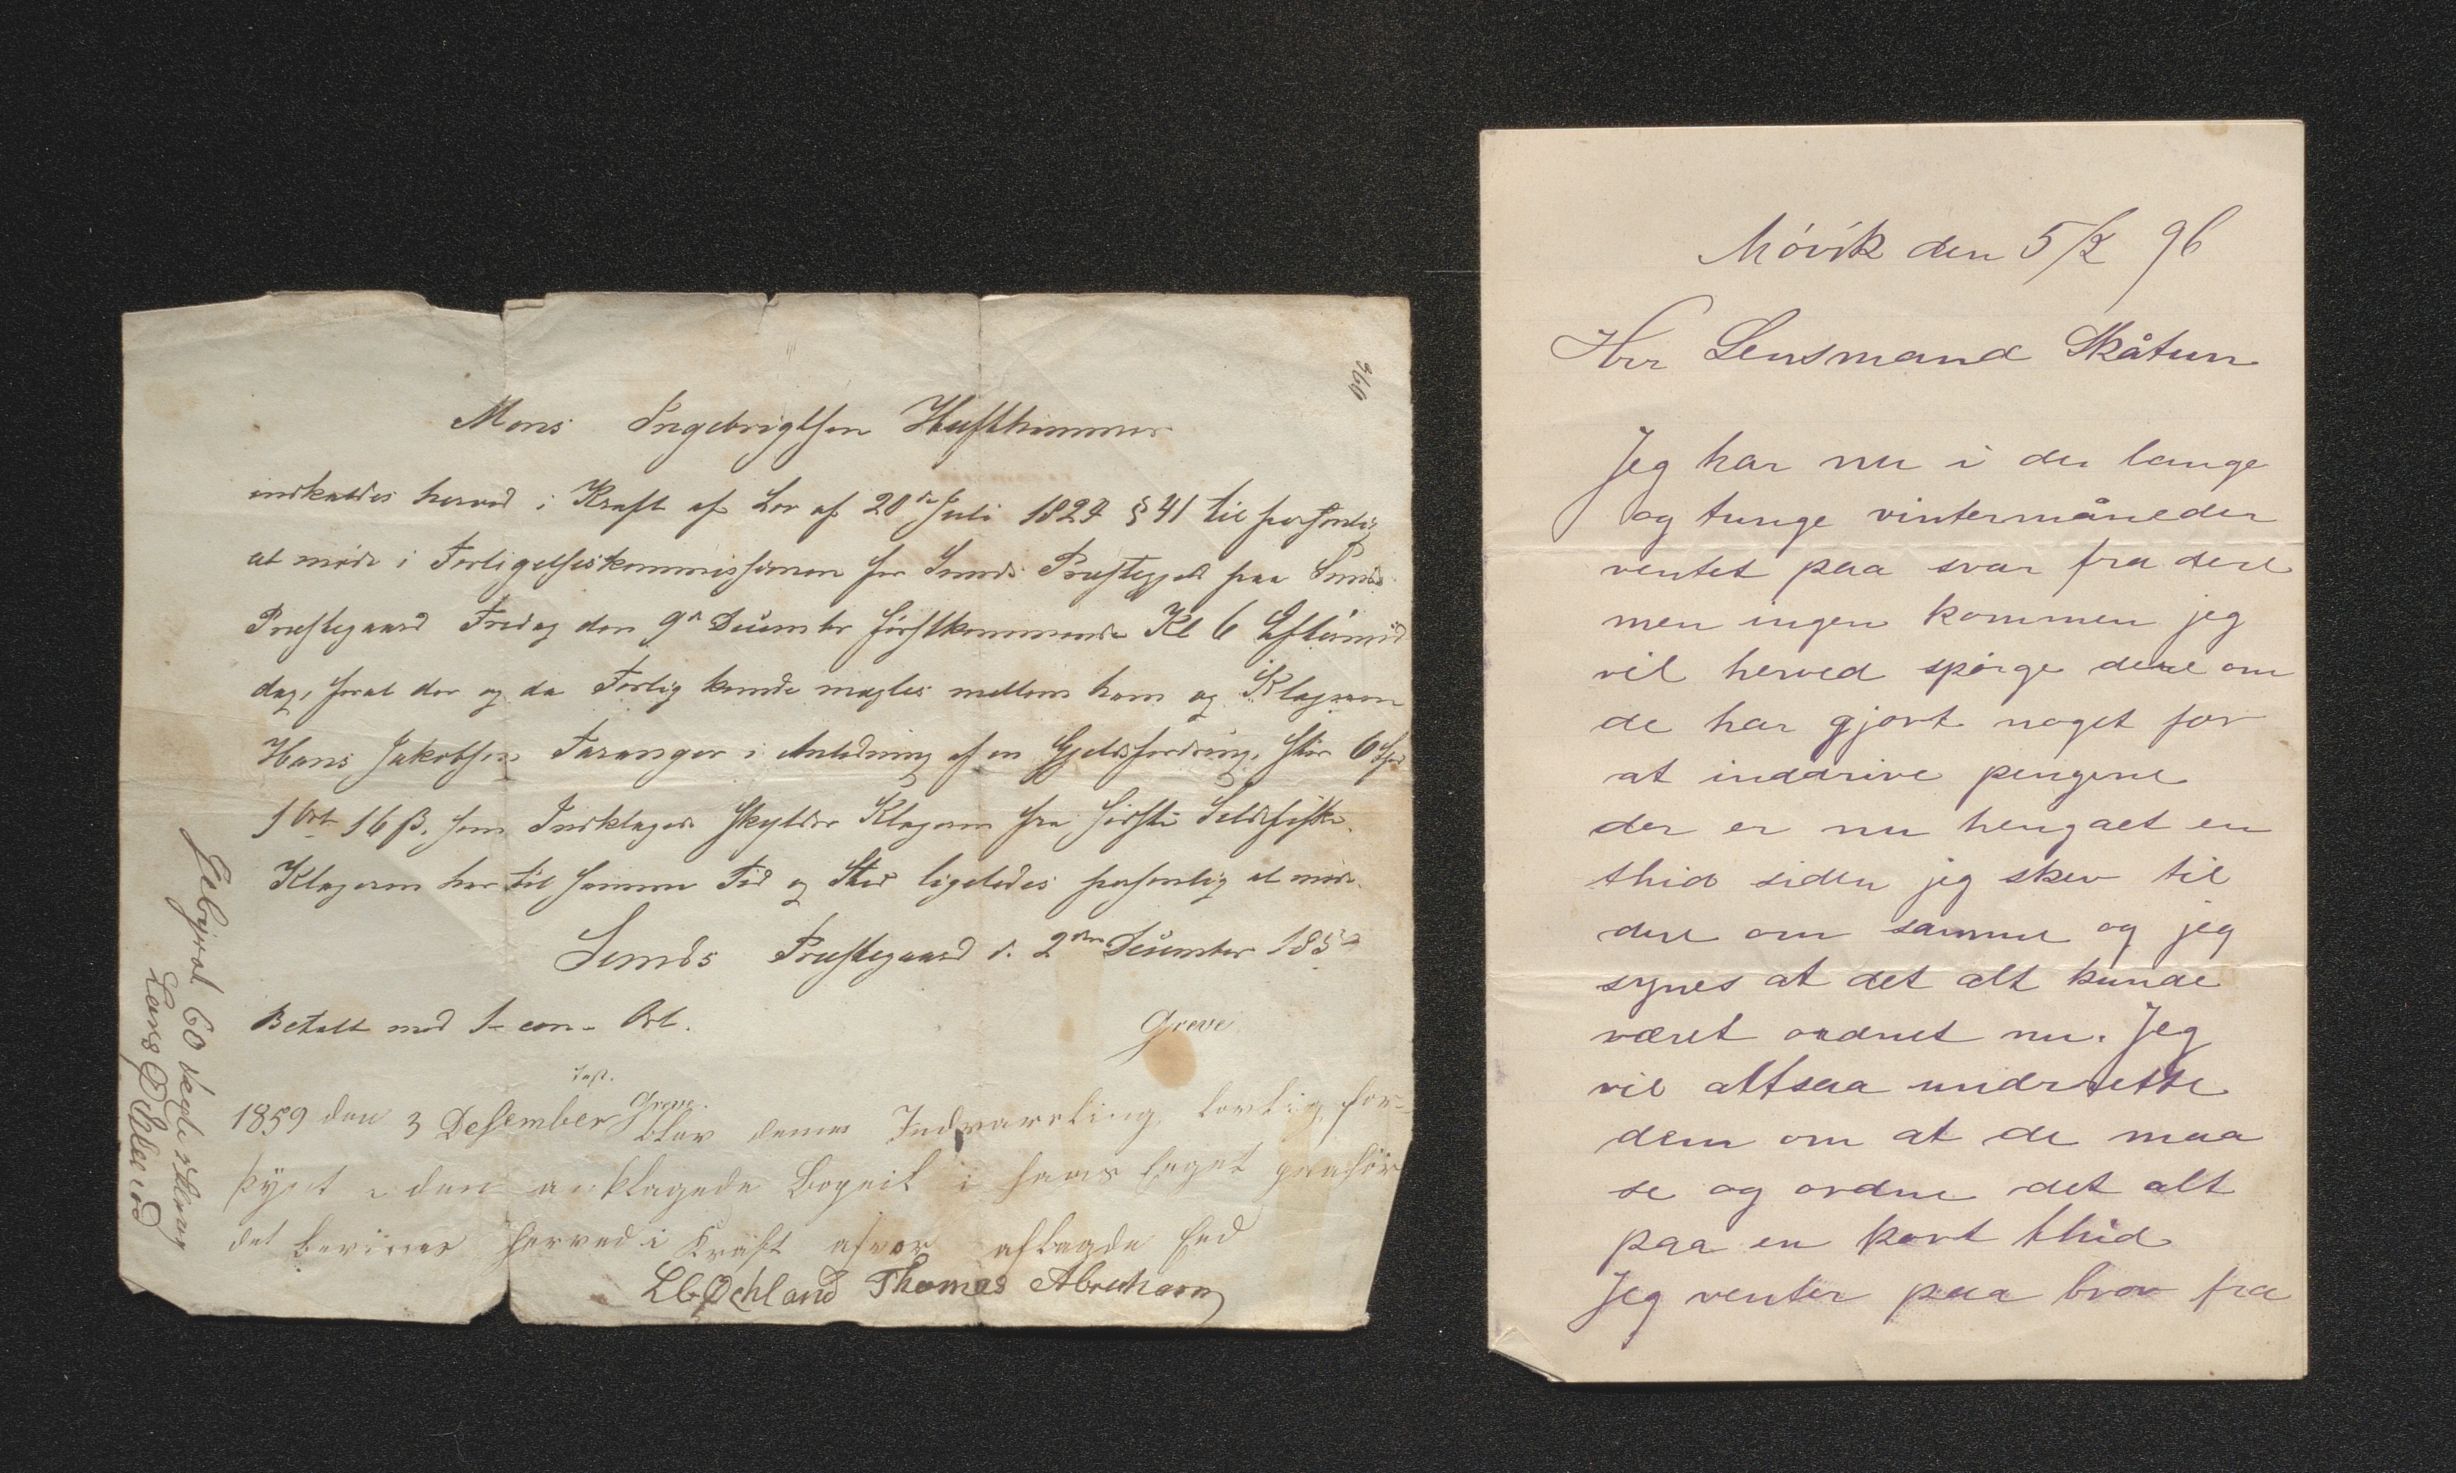 366
Mons Ingebrigtsen Hufthammer
indkaldes herved i Kraft af Lov af 20de Juli 1824 § 41 til personlig
at møde i Forligelseskommissionen for Sunds Præstegjeld paa Sunds
Præstegaard Fredag den 9de December førstkommende Kl 6 Eftermid
dag, forat der og da Forlig kunde mægles mellem ham og Klageren
Hans Jakobsen Toranger i Anledning af en Gjeldsfordring, stor 6 Spd
1 Ort 16 β, som Indklagede skylder Klageren fra sidste Sildefiske.
Klageren har til samme Tid og Sted ligeledes personlig at møde.
Sunds Præstegaard d. 2den December 1859
Betalt med 1 - een - Ort.
Greve
Greve.
1859 den 3 Desember blev denne Indvarsling lovlig for-
kynt den anklagede Bopeil i hans eget
det bevines herved i Kraft aflagde Eed
Thomas Abraham
60
Lars
Móvik den 5/2 96
Hrr Lensmand Skåtun
Jeg har nu i de lange
og tunge vintermåneder
ventet paa svar fra dere
men ingen kommen jeg
vil herved spórge dere om
de har gjort noget for
at inddrive pengene
der er nu hengaet en
thid siden jeg skev til
dere om samme og jeg
synes at det alt kunde
været ordnet nu. Jeg
vil altsaa underrette
dem om at de maa
se og ordne det alt
paa en kort thid
Jeg venter paa brev fra